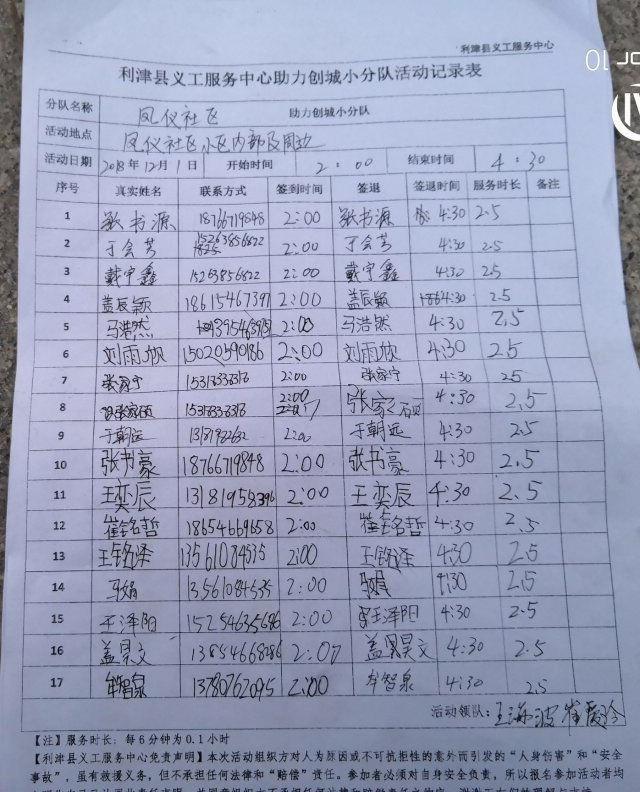 利津县义工服务中心
利津县义工服务中心助力创城小分队活动记录表
分队名称 凤仪社区 助力创城小分队
活动地点 凤仪社区小区内部及周边
活动日期 2018年12月1日 开始时间 2:00 结束时间 4:30
序号 真实姓名 联系方式 签到时间 签退 签退时间 服务时长 备注
1 书源 18766719848 2:00 书源 4:30 2.5
2 于会芳 15263856822 2:00 于会芳 4:30 2.5
3 戴宇鑫 15263856822 2:00 戴宇鑫 4:30 2.5
4 盖辰颖 18615467397 2:00 盖辰颖 4:30 2.5
5 马浩然 2:00 马浩然 4:30 2.5
6 刘雨欣 15020590186 2:00 刘雨欣 4:30 2.5
7 张家宁 2:00 张家宁 4:30 2.5
8 张家硕 2:00 张家硕 4:30 2.5
9 于朝远 2:00 于朝远 4:30 2.5
10 张书豪 18766719848 2:00 张书豪 4:30 2.5
11 王奕辰 13181958396 2:00 王奕辰 4:30 2.5
12 崔铭哲 18654669658 2:00 崔铭哲 4:30 2.5
13 王铭泽 13561084535 2:00 王铭泽 4:30 2.5
14 马娟 13561084535 2:00 马娟 4:30 2.5
15 王泽阳 15254635686 2:00 王泽阳 4:30 2.5
16 盖昊文 13854668286 2:00 盖昊文 4:30 2.5
17 牟智泉 13780762095 2:00 牟智泉 4:30 2.5
活动领队: 王海波 崔
【注】服务时长：每6分钟为0.1小时
【利津县义工服务中心免责声明】本次活动组织方对人为原因或不可抗拒性的意外而引发的“人身伤害”和“安全
事故”，虽有救援义务，但不承担任何法律和“赔偿”责任。参加者必须对自身安全负责，所以报名参加活动者均